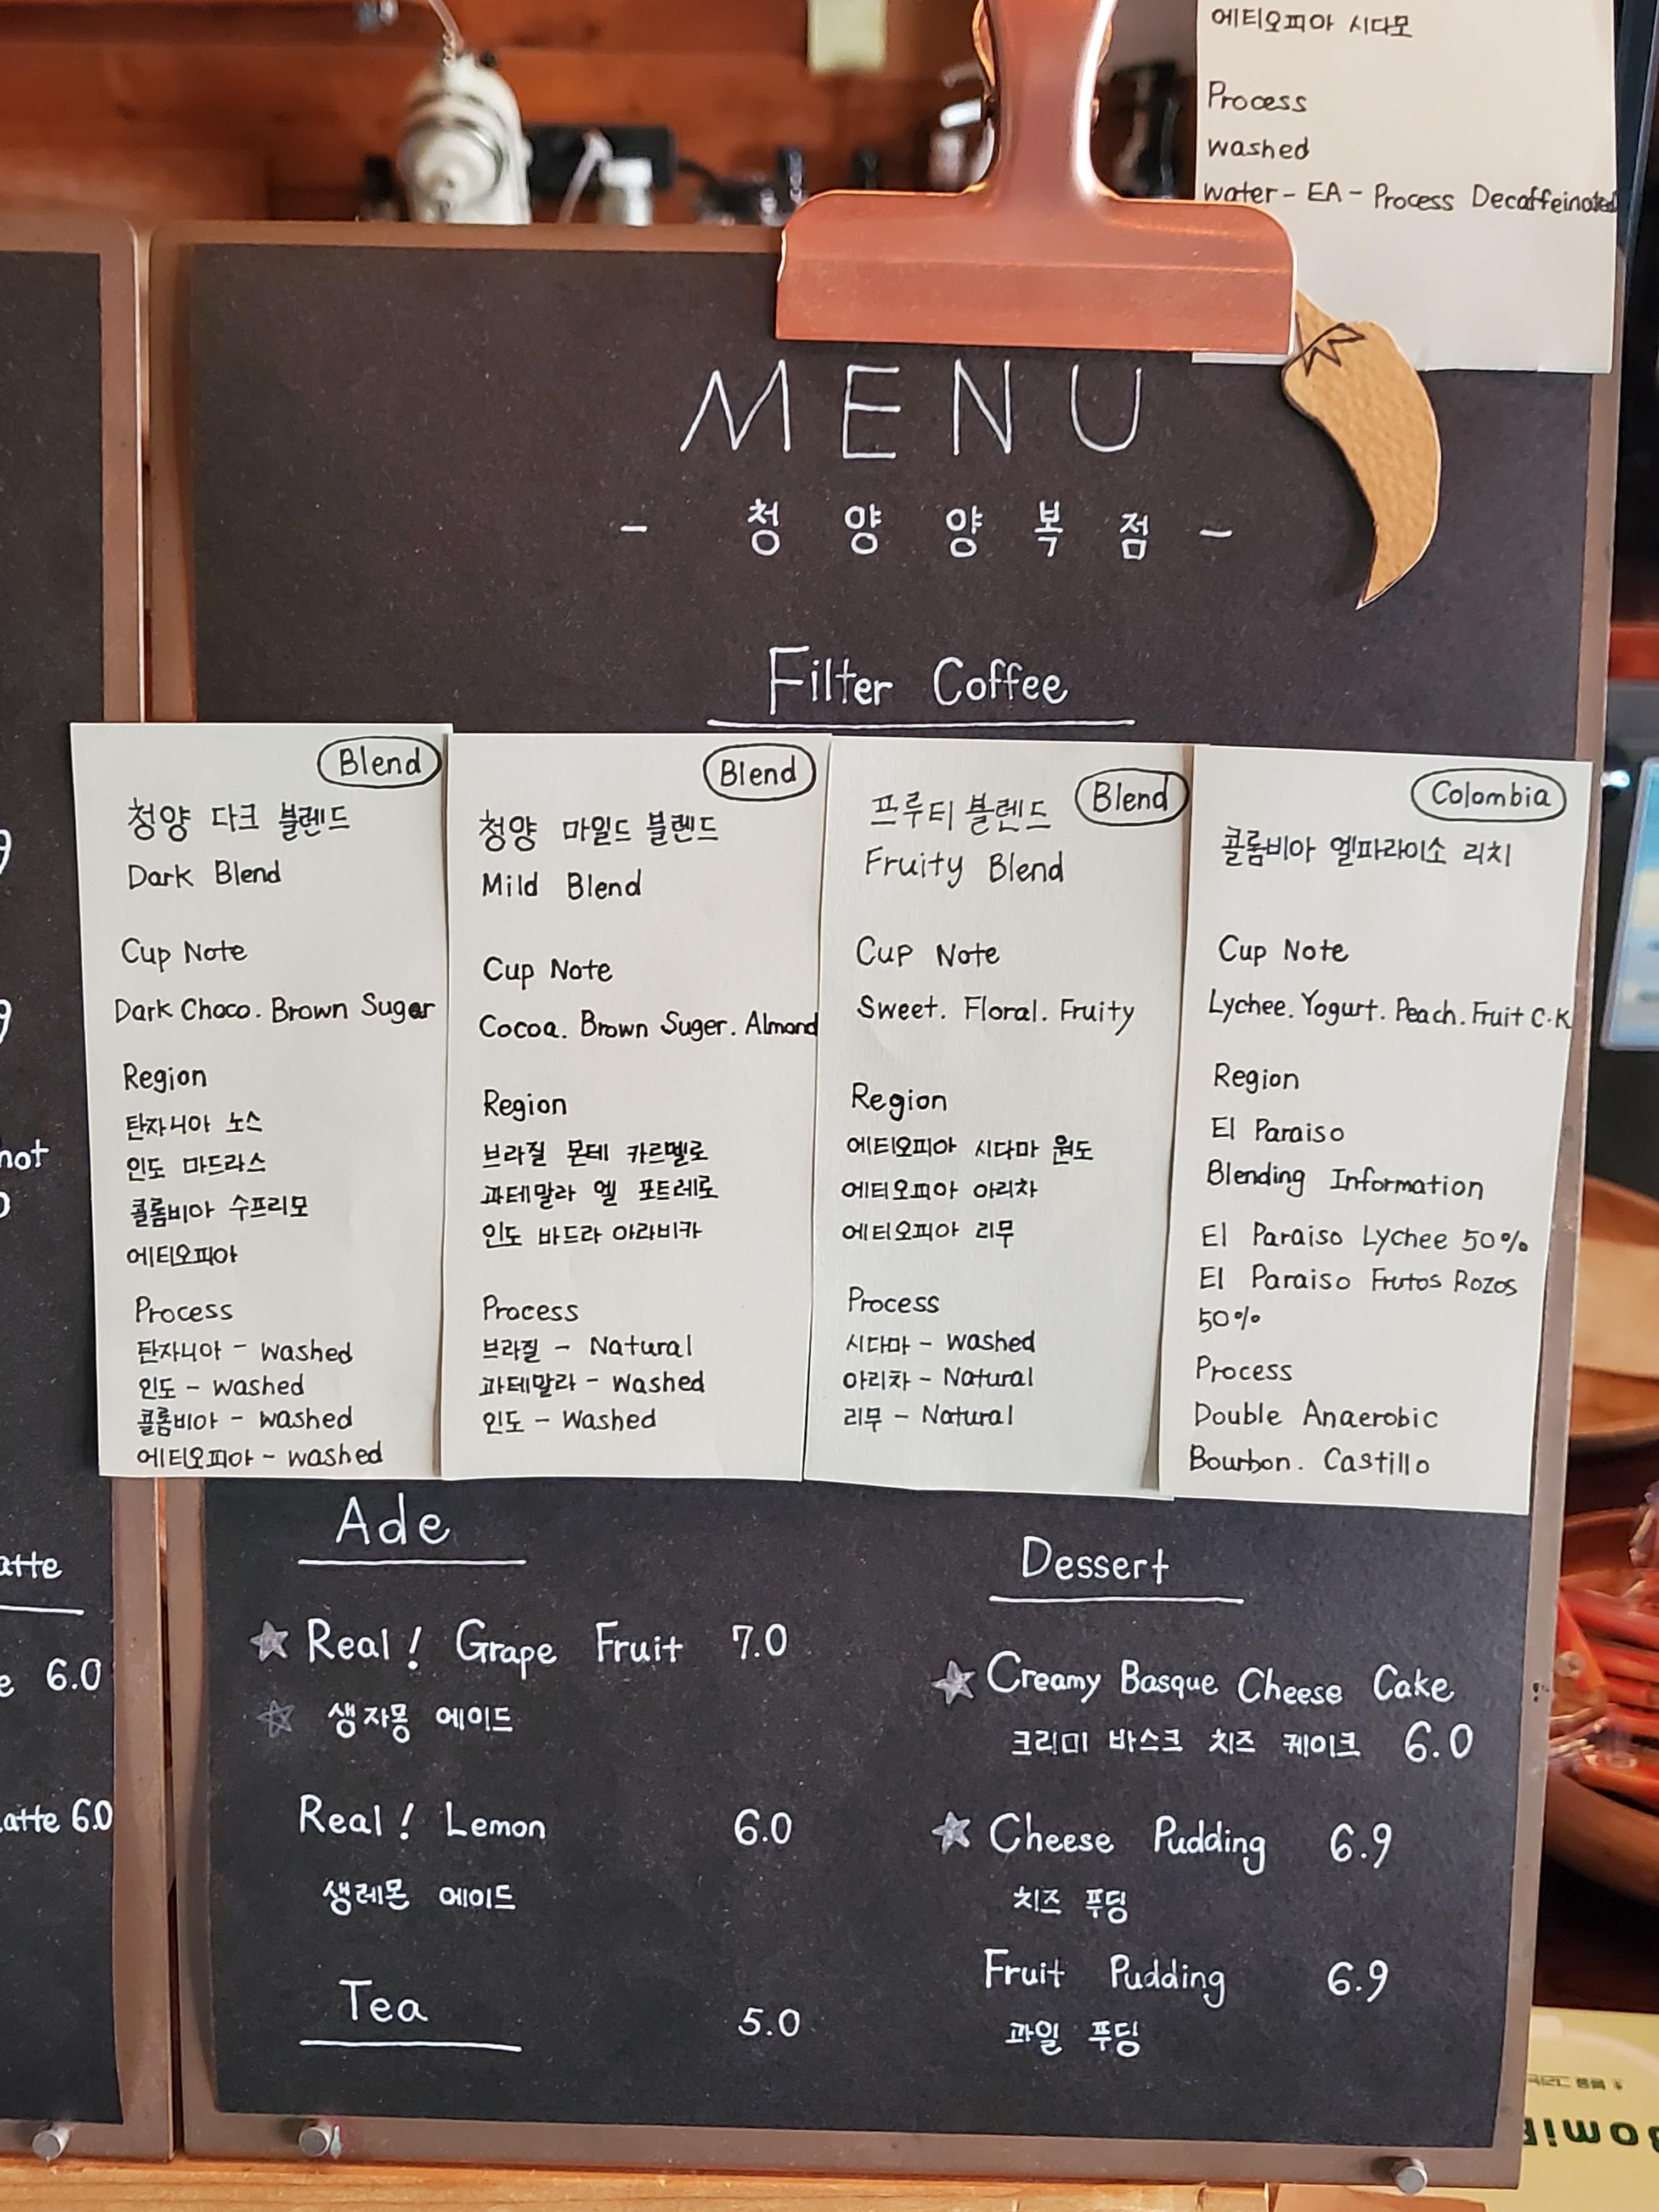 에티오피아 시다모
Process
washed
water - EA - Process Decaffeinated
MENU
- 청양양복점 -
Filter Coffee
Blend
청양 다크 블렌드
Dark Blend
Cup Note
Dark Choco. Brown Suger
Region
탄자니아 노스
인도 마드라스
콜롬비아 수프리모
에티오피아
Process
탄자니아 - washed
인도 - washed
콜롬비아 - washed
에티오피아 - washed
Blend
청양 마일드 블렌드
Mild Blend
Cup Note
Cocoa. Brown Suger. Almond
Region
브라질 몬테 카르멜로
과테말라 엘 포트레로
인도 바드라 아라비카
Process
브라질 - Natural
과테말라 - Washed
인도 - Washed
Blend
프루티 블렌드
Fruity Blend
Cup Note
Sweet. Floral. Fruity
Region
에티오피아 시다마 원도
에티오피아 아리차
에티오피아 리무
Process
시다마 - washed
아리차 - Natural
리무 - Natural
Colombia
콜롬비아 엘파라이소 리치
Cup Note
Lychee. Yogurt. Peach. Fruit C.K
Region
El Paraiso
Blending Information
El Paraiso Lychee 50%
El Paraiso Frutos Rozos
50%
Process
Double Anaerobic
Bourbon. Castillo
Ade
★ Real! Grape Fruit 7.0
☆ 생자몽 에이드
Real! Lemon 6.0
생레몬 에이드
Tea 5.0
Dessert
★ Creamy Basque Cheese Cake
크리미 바스크 치즈 케이크 6.0
★ Cheese Pudding 6.9
치즈 푸딩
Fruit Pudding 6.9
과일 푸딩
6.0
6.0